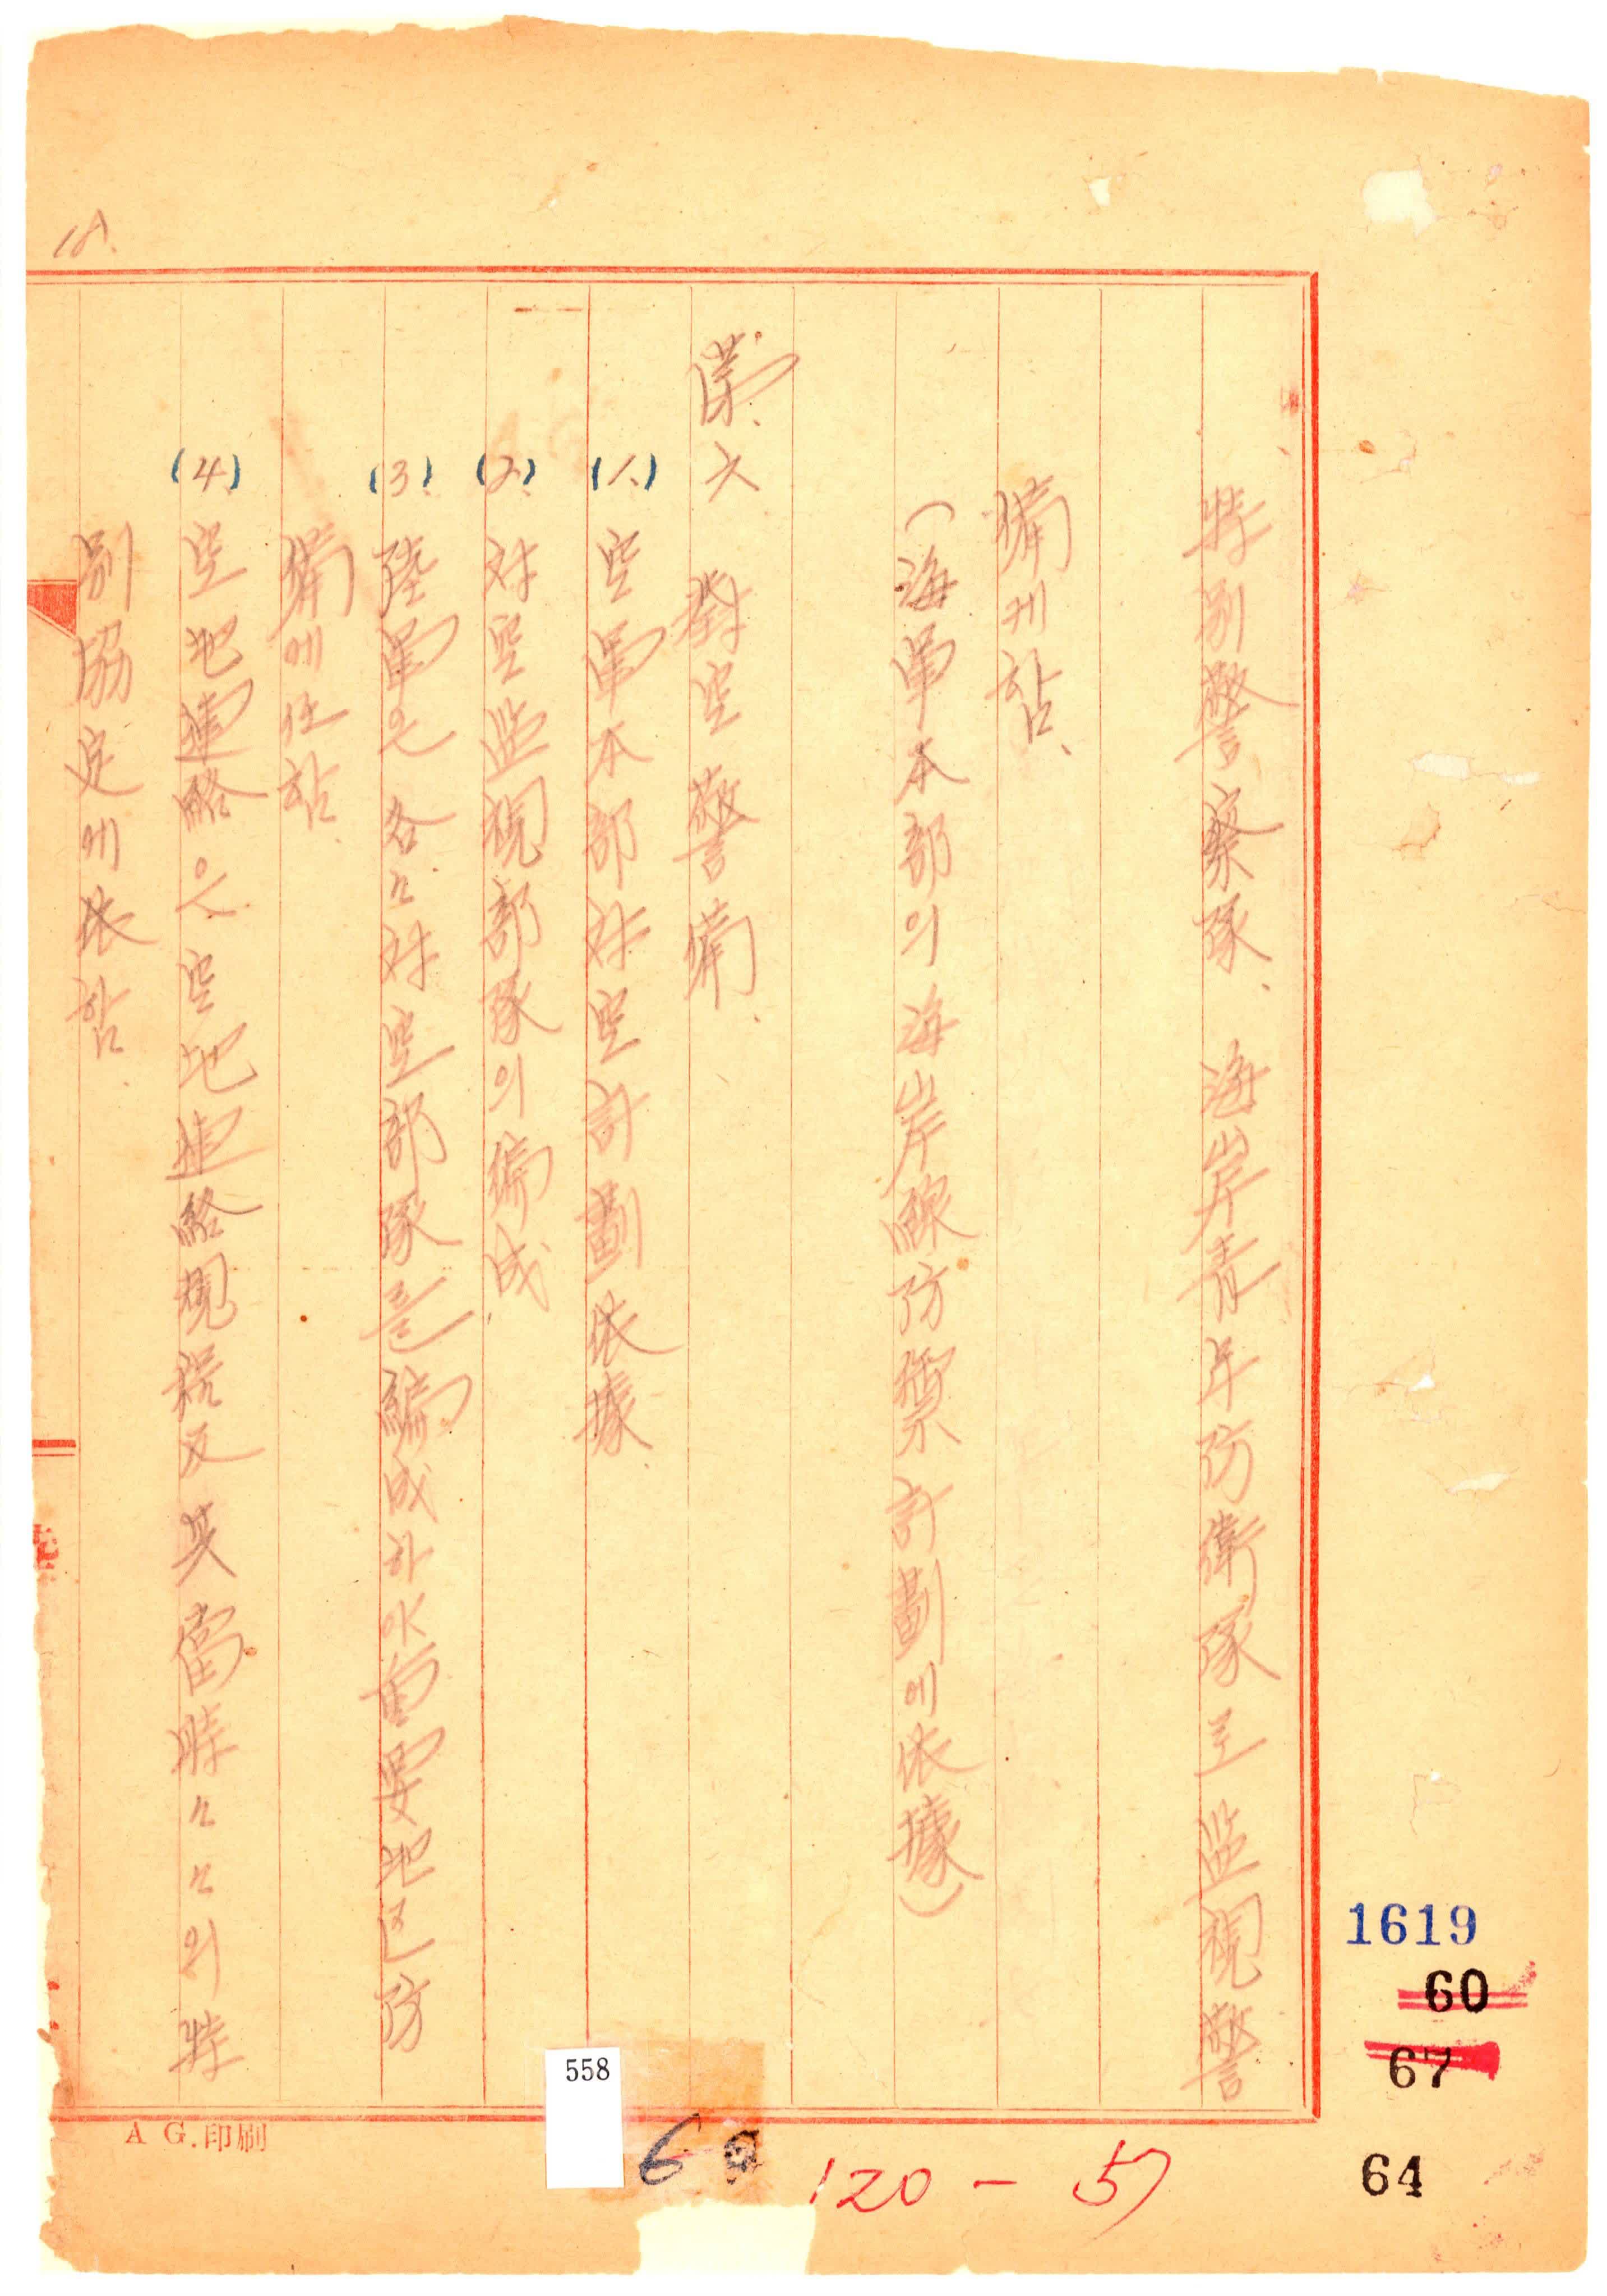 特別警察隊、海岸青年防衛隊로 監視警
備케함、
(海軍本部의 海岸線防禦計劃에依據)
第六 對空警備、
(1.) 空軍本部対空計劃依據、
(2.) 対空監視部隊의編成、
(3.) 陸軍은 各々対空部隊를編成하야重要地区防
備에任함、
(4.) 空地連絡은 空地連絡規定及其當時々々의特
別協定에依함、
18.
A G.印刷
1619
60
67
64
558
60
120-57